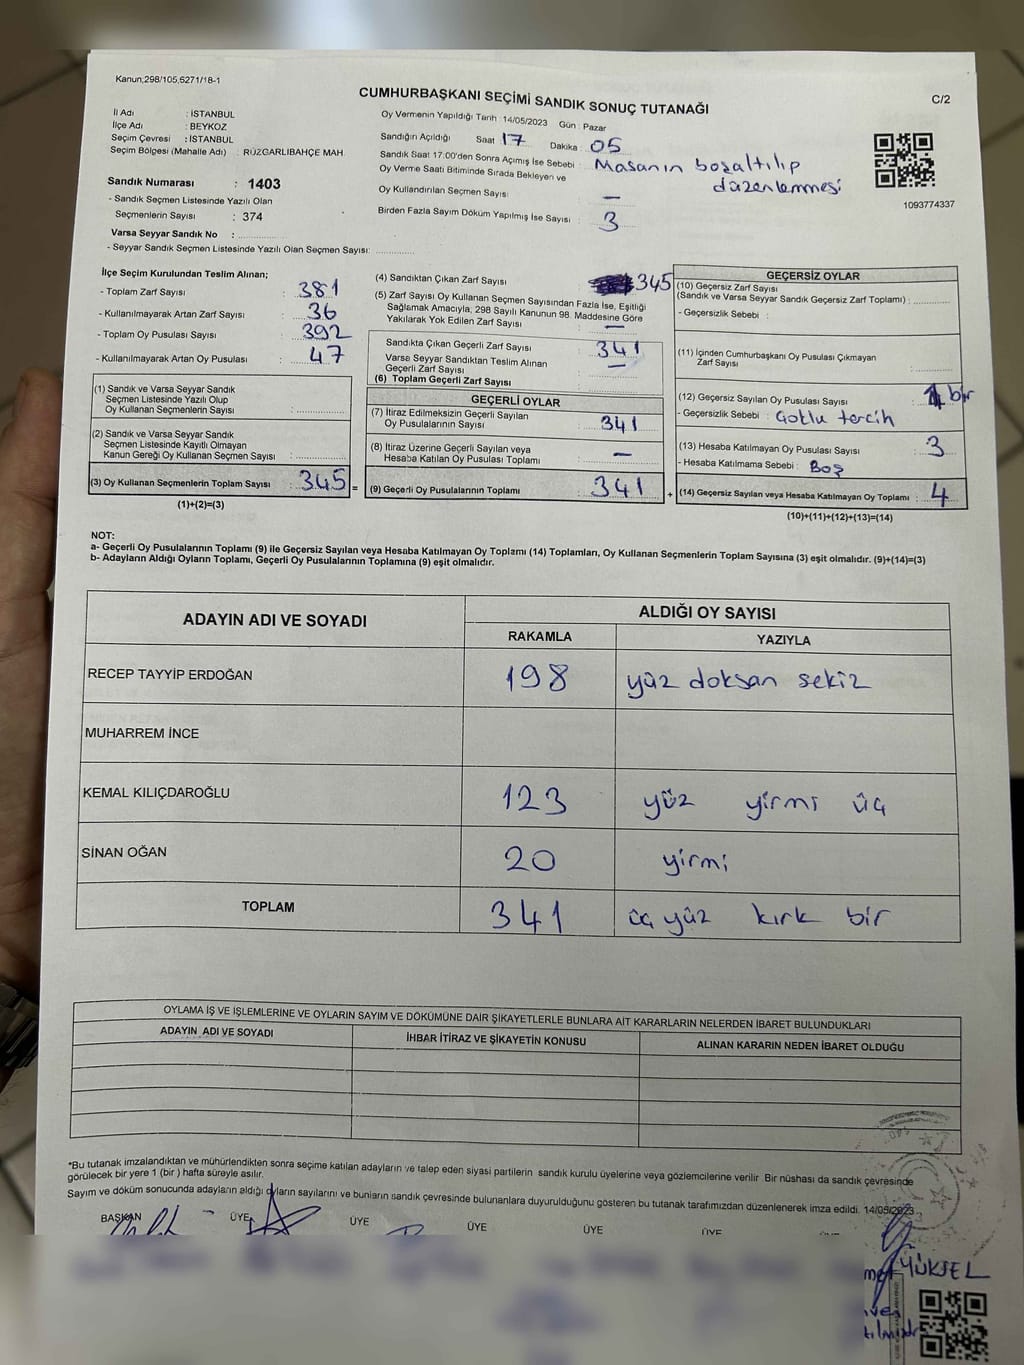 Kanun,298/105,6271/18-1
C/2
CUMHURBAŞKANI SEÇİMİ SANDIK SONUÇ TUTANAĞI
İl Adı : İSTANBUL
İlçe Adı : BEYKOZ
Seçim Çevresi : İSTANBUL
Seçim Bölgesi (Mahalle Adı) : RÜZGARLIBAHÇE MAH.
Sandık Numarası : 1403
- Sandık Seçmen Listesinde Yazılı Olan
Seçmenlerin Sayısı : 374
Varsa Seyyar Sandık No :
- Seyyar Sandık Listesinde Yazılı Olan Seçmen Sayısı:
Oy Vermenin Yapıldığı Tarih : 14/05/2023 Gün : Pazar
Sandığın Açıldığı Saat 17 Dakika : 05
Sandık Saat 17:00'den Sonra Açımış İse Sebebi : Masanın boşaltılıp
düzenlenmesi
Oy Verme Saati Bitiminde Sırada Bekleyen ve
Oy Kullandırılan Seçmen Sayısı : —
Birden Fazla Sayım Döküm Yapılmış İse Sayısı : 3
1093774337
İlçe Seçim Kurulundan Teslim Alınan;
- Toplam Zarf Sayısı : 381
- Kullanılmayarak Artan Zarf Sayısı : 36
- Toplam Oy Pusulası Sayısı : 392
- Kullanılmayarak Artan Oy Pusulası : 47
(1) Sandık ve Varsa Seyyar Sandık
Seçmen Listesinde Yazılı Olup
Oy Kullanan Seçmenlerin Sayısı :
(2) Sandık ve Varsa Seyyar Sandık
Seçmen Listesinde Kayıtlı Olmayan
Kanun Gereği Oy Kullanan Seçmen Sayısı :
(3) Oy Kullanan Seçmenlerin Toplam Sayısı : 345 =
(1)+(2)=(3)
(4) Sandıktan Çıkan Zarf Sayısı : 345
(5) Zarf Sayısı Oy Kullanan Seçmen Sayısından Fazla İse, Eşitliği
Sağlamak Amacıyla, 298 Sayılı Kanunun 98. Maddesine Göre
Yakılarak Yok Edilen Zarf Sayısı : —
Sandıkta Çıkan Geçerli Zarf Sayısı : 341
Varsa Seyyar Sandıktan Teslim Alınan
Geçerli Zarf Sayısı : —
(6) Toplam Geçerli Zarf Sayısı
GEÇERLİ OYLAR
(7) İtiraz Edilmeksizin Geçerli Sayılan
Oy Pusulalarının Sayısı : 341
(8) İtiraz Üzerine Geçerli Sayılan veya
Hesaba Katılan Oy Pusulası Toplamı : —
(9) Geçerli Oy Pusulalarının Toplamı : 341 +
GEÇERSİZ OYLAR
(10) Geçersiz Zarf Sayısı
(Sandık ve Varsa Seyyar Sandık Geçersiz Zarf Toplamı) :
- Geçersizlik Sebebi :
(11) İçinden Cumhurbaşkanı Oy Pusulası Çıkmayan
Zarf Sayısı :
(12) Geçersiz Sayılan Oy Pusulası Sayısı : 1 bir
- Geçersizlik Sebebi : Çoklu tercih
(13) Hesaba Katılmayan Oy Pusulası Sayısı : 3
- Hesaba Katılmama Sebebi : Boş
(14) Geçersiz Sayılan veya Hesaba Katılmayan Oy Toplamı : 4
(10)+(11)+(12)+(13)=(14)
NOT:
a- Geçerli Oy Pusulalarının Toplamı (9) ile Geçersiz Sayılan veya Hesaba Katılmayan Oy Toplamı (14) Toplamları, Oy Kullanan Seçmenlerin Toplam Sayısına (3) eşit olmalıdır. (9)+(14)=(3)
b- Adayların Aldığı Oyların Toplamı, Geçerli Oy Pusulalarının Toplamına (9) eşit olmalıdır.
ADAYIN ADI VE SOYADI ALDIĞI OY SAYISI
RAKAMLA YAZIYLA
RECEP TAYYİP ERDOĞAN 198 yüz doksan sekiz
MUHARREM İNCE
KEMAL KILIÇDAROĞLU 123 yüz yirmi üç
SİNAN OĞAN 20 yirmi
TOPLAM 341 üç yüz kırk bir
OYLAMA İŞ VE İŞLEMLERİNE VE OYLARIN SAYIM VE DÖKÜMÜNE DAİR ŞİKAYETLERLE BUNLARA AİT KARARLARIN NELERDEN İBARET BULUNDUKLARI
ADAYIN ADI VE SOYADI İHBAR İTİRAZ VE ŞİKAYETİN KONUSU ALINAN KARARIN NEDEN İBARET OLDUĞU
*Bu tutanak imzalandıktan ve mühürlendikten sonra seçime katılan adayların ve talep eden siyasi partilerin sandık kurulu üyelerine veya gözlemcilerine verilir Bir nüshası da sandık çevresinde
görülecek bir yere 1 (bir ) hafta süreyle asılır.
Sayım ve döküm sonucunda adayların aldığı oyların sayılarını ve bunların sandık çevresinde bulunanlara duyurulduğunu gösteren bu tutanak tarafımızdan düzenlenerek imza edildi. 14/05/2023
BAŞKAN ÜYE ÜYE ÜYE ÜYE ÜYE
YÜKSEL